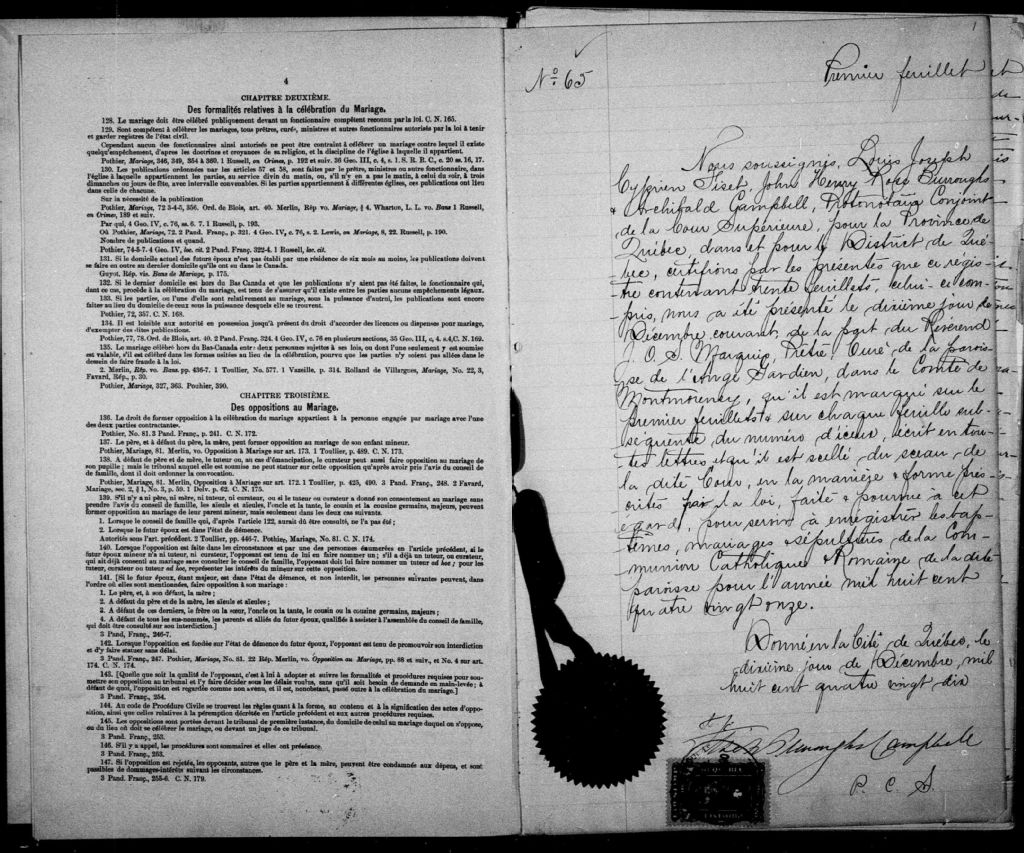 4
CHAPITRE DEUXIÈME.
Des formalités relatives à la célébration du Mariage.
128. Le mariage doit être célébré publiquement devant un fonctionnaire compétent reconnu par la loi. C. N. 165.
129. Sont compétents à célébrer les mariages, tous prêtres, curés, ministres et autres fonctionnaires autorisés par la loi à tenir
et garder registres de l'état civil.
Cependant aucun des fonctionnaires ainsi autorisés ne peut être contraint à célébrer un mariage contre lequel il existe
quelqu'empêchement, d'apres les doctrines et croyances de sa religion, et la discipline de l'église à laquelle il appartient.
Pothier, Mariage, 346, 349, 354 à 360. 1 Russell, on Crimes, p. 192 et suiv. 36 Geo. III, c. 4, s. 1. S. R. B. C., c. 20 ss. 16, 17.
130. Les publications ordonnées par les articles 57 et 58, sont faites par le prêtre, ministre ou autre fonctionnaire, dans
l'église à laquelle appartiennent les parties, au service divin du matin, ou, s'il n'y en a pas le matin, à celui du soir, à trois
dimanches ou jours de fête, avec intervalle convenables. Si les parties appartiennent à différentes églises, ces publications ont lieu
dans celle de chacune.
Sur la nécessité de la publication
Pothier, Mariage, 72 3-4-5, 356. Ord. de Blois, art. 40. Merlin, Rép vo. Mariage, § 4. Wharton, L. L. vo. Bans 1 Russell,
on Crimes, 189 et suiv.
Par qui, 4 Geo. IV, c. 76, ss. 6. 7. 1 Russell, p. 193.
Où Pothier, Mariage, 72. 2 Pand. Franç., p. 321. 4 Geo. IV, c. 76, s. 2. Lewis, on Mariage, 8, 22. Russell, p. 190.
Nombre de publications et quand.
Pothier, 74-5-7. 4 Geo. IV, loc. cit. 2 Pand. Franç. 322-4. 1 Russell, loc. cit.
131. Si le domicile actuel des futurs époux n'est pas établi par une résidence de six mois au moins, les publications doivent
se faire en outre au dernier domicile qu'ils ont eu dans le Canada.
Guyot, Rép. vis. Bans de Mariage, p. 175.
132. Si le dernier domicile est hors du Bas Canada et que les publications n'y aient pas été faites, le fonctionnaire qui,
dant ce cas, procède à la célébration du mariage, est tenu de s'assurer qu'il existe entre les parties aucuns empêchements légaux.
133. Si les parties, ou l'une d'elle sont relativement au mariage, sous la puissance d'autrui, les publications sont encore
faites au lieu du domicile de ceux sous la puissance desquels elle se trouvent.
Pothier, 72, 357. C. N. 168.
134. Il est loisible aux autorité en possession jusqu'à présent du droit d'accorder des licences ou dispenses pour mariage,
d'exempter des dites publications.
Pothier, 77, 78. Ord. de Blois, art. 40. 2 Pand. Franç. 324. 4 Geo. IV, c. 76 en plusieurs sections, 35 Geo. III, c. 4, s.4,C. N. 169.
135. Le mariage célébré hors du Bas-Canada entre deux personnes sujettes à ses lois, ou dont l'une seulement y est soumise
est valable, s'il est célébré dans les formes usitées au lieu de la célébration, pourvu que les parties n'y soient pas allées dans le
dessein de faire fraude à la loi.
2 Merlin, Rép. vo. Bans. pp 436-7. 1 Toullier, No. 577. 1 Vazeille, p. 314. Rolland de Villargues, Mariage, No. 22, 3,
Favard, Rép., p. 30.
Pothier, Mariage, 327, 363. Pouhier, 390.
CHAPITRE TROISIÈME.
Des oppositions au Mariage.
136. Le droit de former opposition à la célébration du mariage appartient à la personne engagée par mariage avec l'une
des deux parties contractantes.
Pothier, No. 81. 3 Pand. Franç., p. 241. C. N. 172.
137. Le père, et à défaut du père, la mère, peut former opposition au mariage de son enfant mineur.
Pothier, Mariage, 81. Merlin, vo. Opposition à Mariage sur art. 173, 1 Toullier, p. 489. C. N. 173.
138. A défaut de père et de mère, le tuteur, ou, au cas d'émancipation, le curateur peut aussi faire opposition au mariage de
son pupille; mais le tribunal auquel elle est soumise ne peut statuer sur cette opposition qu'après avoir pris l'avis du conseil de
famille, dont il doit ordonner la convocation.
Pothier, Mariage, 81. Merlin, Opposition à Mariage sur art. 172. 1 Toullier, p. 425, 490. 3 Pand. Franç., 248. 2 Favard,
Mariage, sec. 2, § 1, No. 3, p. 59. 1 Delv. p. 62. C. N. 175.
139. S'il n'y a ni père, ni mère, ni tuteur, ni curateur, ou si le tuteur ou curateur a donné son consentement au mariage sans
prendre l'avis du conseil de famille, les aïeuls et aïeules, l'oncle et la tante, le cousin et la cousine germains, majeurs, peuvent
former opposition au mariage de leur parent mineur, mais seulement dans les deux cas suivants.
1. Lorsque le conseil de famille qui, d'après l'article 122, aurait dû être consulté, ne l'a pas été;
2. Lorsque le futur époux est dans l'état de démence.
Autorités sous l'art. précédent 2 Toullier, pp. 446-7. Pothier, Mariage, No. 81. C. N. 174.
140. Lorsque opposition est faite dans les circonstances et par une des personnes énumerées en l'article précédent, si le
futur époux mineur n'a ni tuteur, ni curateur, l'opposant est tenu de lui en faire nommer un; s'il a déjà un tuteur, ou curateur,
qui ait déjà consenti au mariage sans consulter le conseil de famille, l'opposant doit lui faire nommer un tuteur ad hoc; pour les
tuteur, curateur ou tuteur ad hoc, représenter les intérêts du mineur sur cette opposition.
141. [Si le futur époux, étant majeur, est dans l'état de démence, et non interdit, les personnes suivantes peuvent, dans
l'ordre où elles sont mentionnées, faire opposition à son mariage:
1. Le père, et, à son défaut, la mère;
2. A défaut du père et de la mère, les aïeuls et aïeules;
2. A défaut de ces derniers, le frère on la sœur, l'oncle ou la tante, le cousin ou la cousine germains, majeurs;
4. A défaut de tous les sus-nommés, les parents et alliés du futur époux, qualifiés à assister à l'assemblée du conseil de famille,
qui doit être consulté sur son interdiction.]
3 Pand. Franç., 246-7.
142. Lorsque l'opposition est fondée sur l'état de démence du futur époux, l'opposant est tenu de promouvoir son interdiction
et d'y faire statuer sans délai.
3 Pand. Franç., 247. Pothier, Mariage, No. 81. 22 Rép. Merlin, vo. Opposition au Mariage, pp. 88 et suiv., et No. 4 sur art.
174. C. N. 174.
143. [Quelque que soit la qualité de l'opposant, c'est à lui à adopter et suivre les formalités et procédures requises pour sou-
mettre son opposition au tribunal et l'y faire décider sous les délais voulus, sans qu'il soit besoin de demande en main-levée; à
défaut de quoi, l'opposition est regardée comme non avenu, et il est, nonobstant, passé outre à la célébration du mariage.]
3 Pand. Franç., 254.
144. Au code de Procédure Civile se trouvent les règles quant à la forme, au contenu et à la signification des actes d'oppo-
sition, ainsi que celles relatives à la péremption décrétée en l'article précédent et aux autres procédures requises.
145. Les oppositions sont portées devant le tribunal de première instance, du domicile de celui au mariage duquel on s'oppose,
ou du lieu où doit se célébrer le mariage, ou devant un juge de ce tribunal.
3 Pand. Franç., 253.
146. S'il y a appel, les procédures sont sommaires et elles ont préséance.
3 Pand. Franç., 253.
147. Si l'opposition est rejetée, les opposants, autres que le père et la mère, peuvent être condamnés aux dépens, et sont
passibles de dommages-intérêts suivant les circonstances.
3 Pand. Franç., 255-6. C. N. 179.
1
No. 65
Premier feuillet
Nous soussignés, Louis Joseph
Cyprien Fiset, John Henry Ross Burroughs
& Archibald Campbell, Protonotaire Conjoint
de la Cour Supérieure, pour la Province de
Québec, dans et pour le District de Qué-
bec, certifions par les présentes que ce regis-
tre contenant trente feuillets, celui-ci com-
pris, nous a été présenté le dixième jour de
Décembre courant, de la part du Révérend
J. O. S. Marquis, Prêtre, Curé de la parois-
se de l'Ange Gardien, dans le Comté de
Montmorency, qu'il est marqué sur le
premier feuillet & sur chaque feuille sub-
séquente du numéro d'iceux, écrit en tou-
tes lettres et qu'il est scellé du sceau de
la dite Cour, en la manière & forme pres-
crites par la loi, faite & pourvue à cet
égard, pour servir à enregistrer les bap-
têmes, mariages & sépultures de la Com-
munion Catholique & Romaine de la dite
paroisse pour l'année mil huit cent
quatre vingt onze.
Donné en la Cité de Québec, le
dixième jour de Décembre, mil
huit cent quatre vingt dix
Fiset Burroughs Campbell
P. C. S.